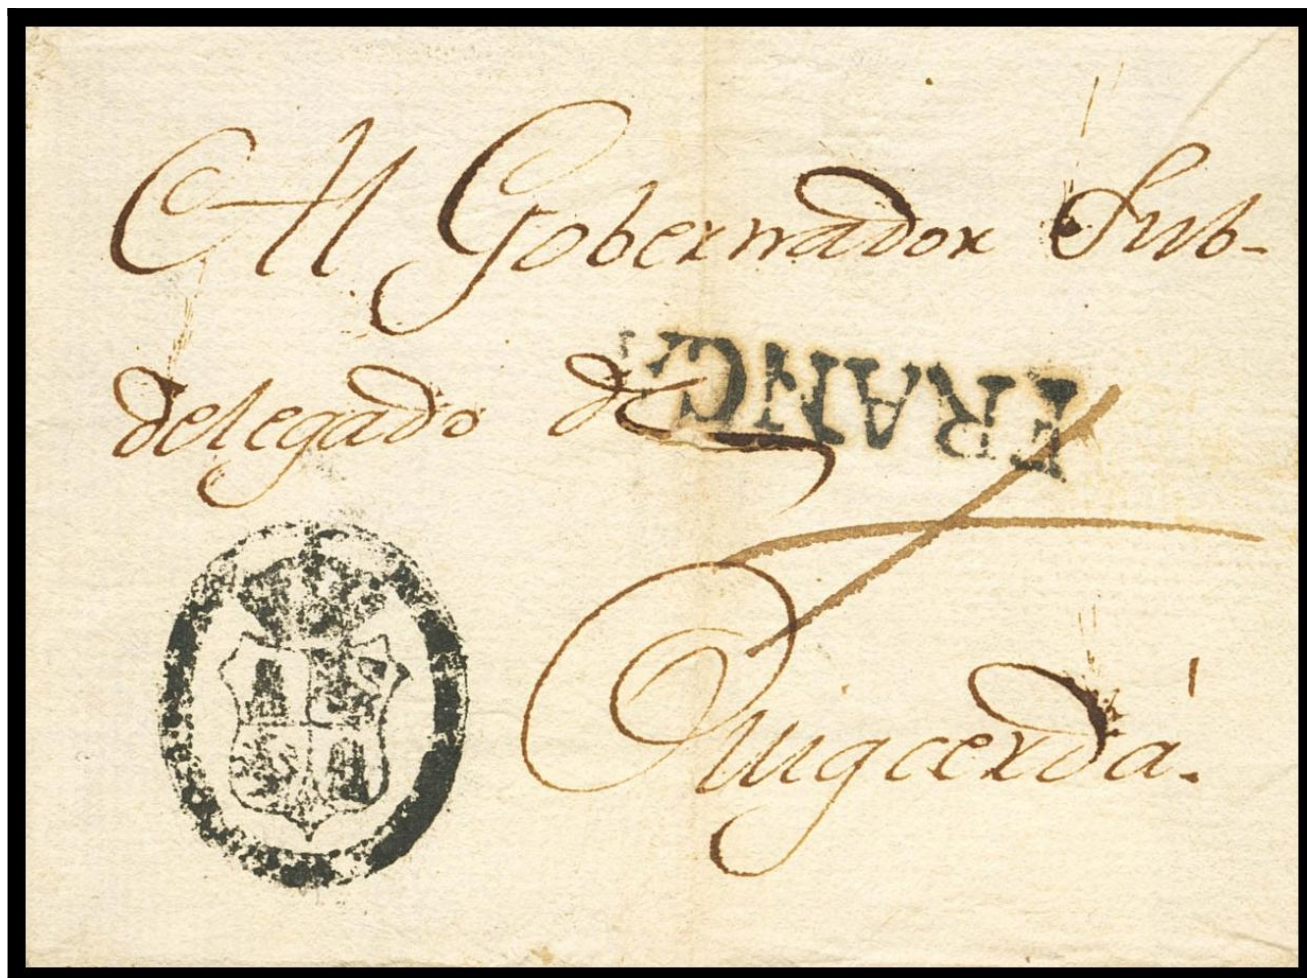 Al Gobernador Sub-
delegado de
FRANC
Puigcerdá.